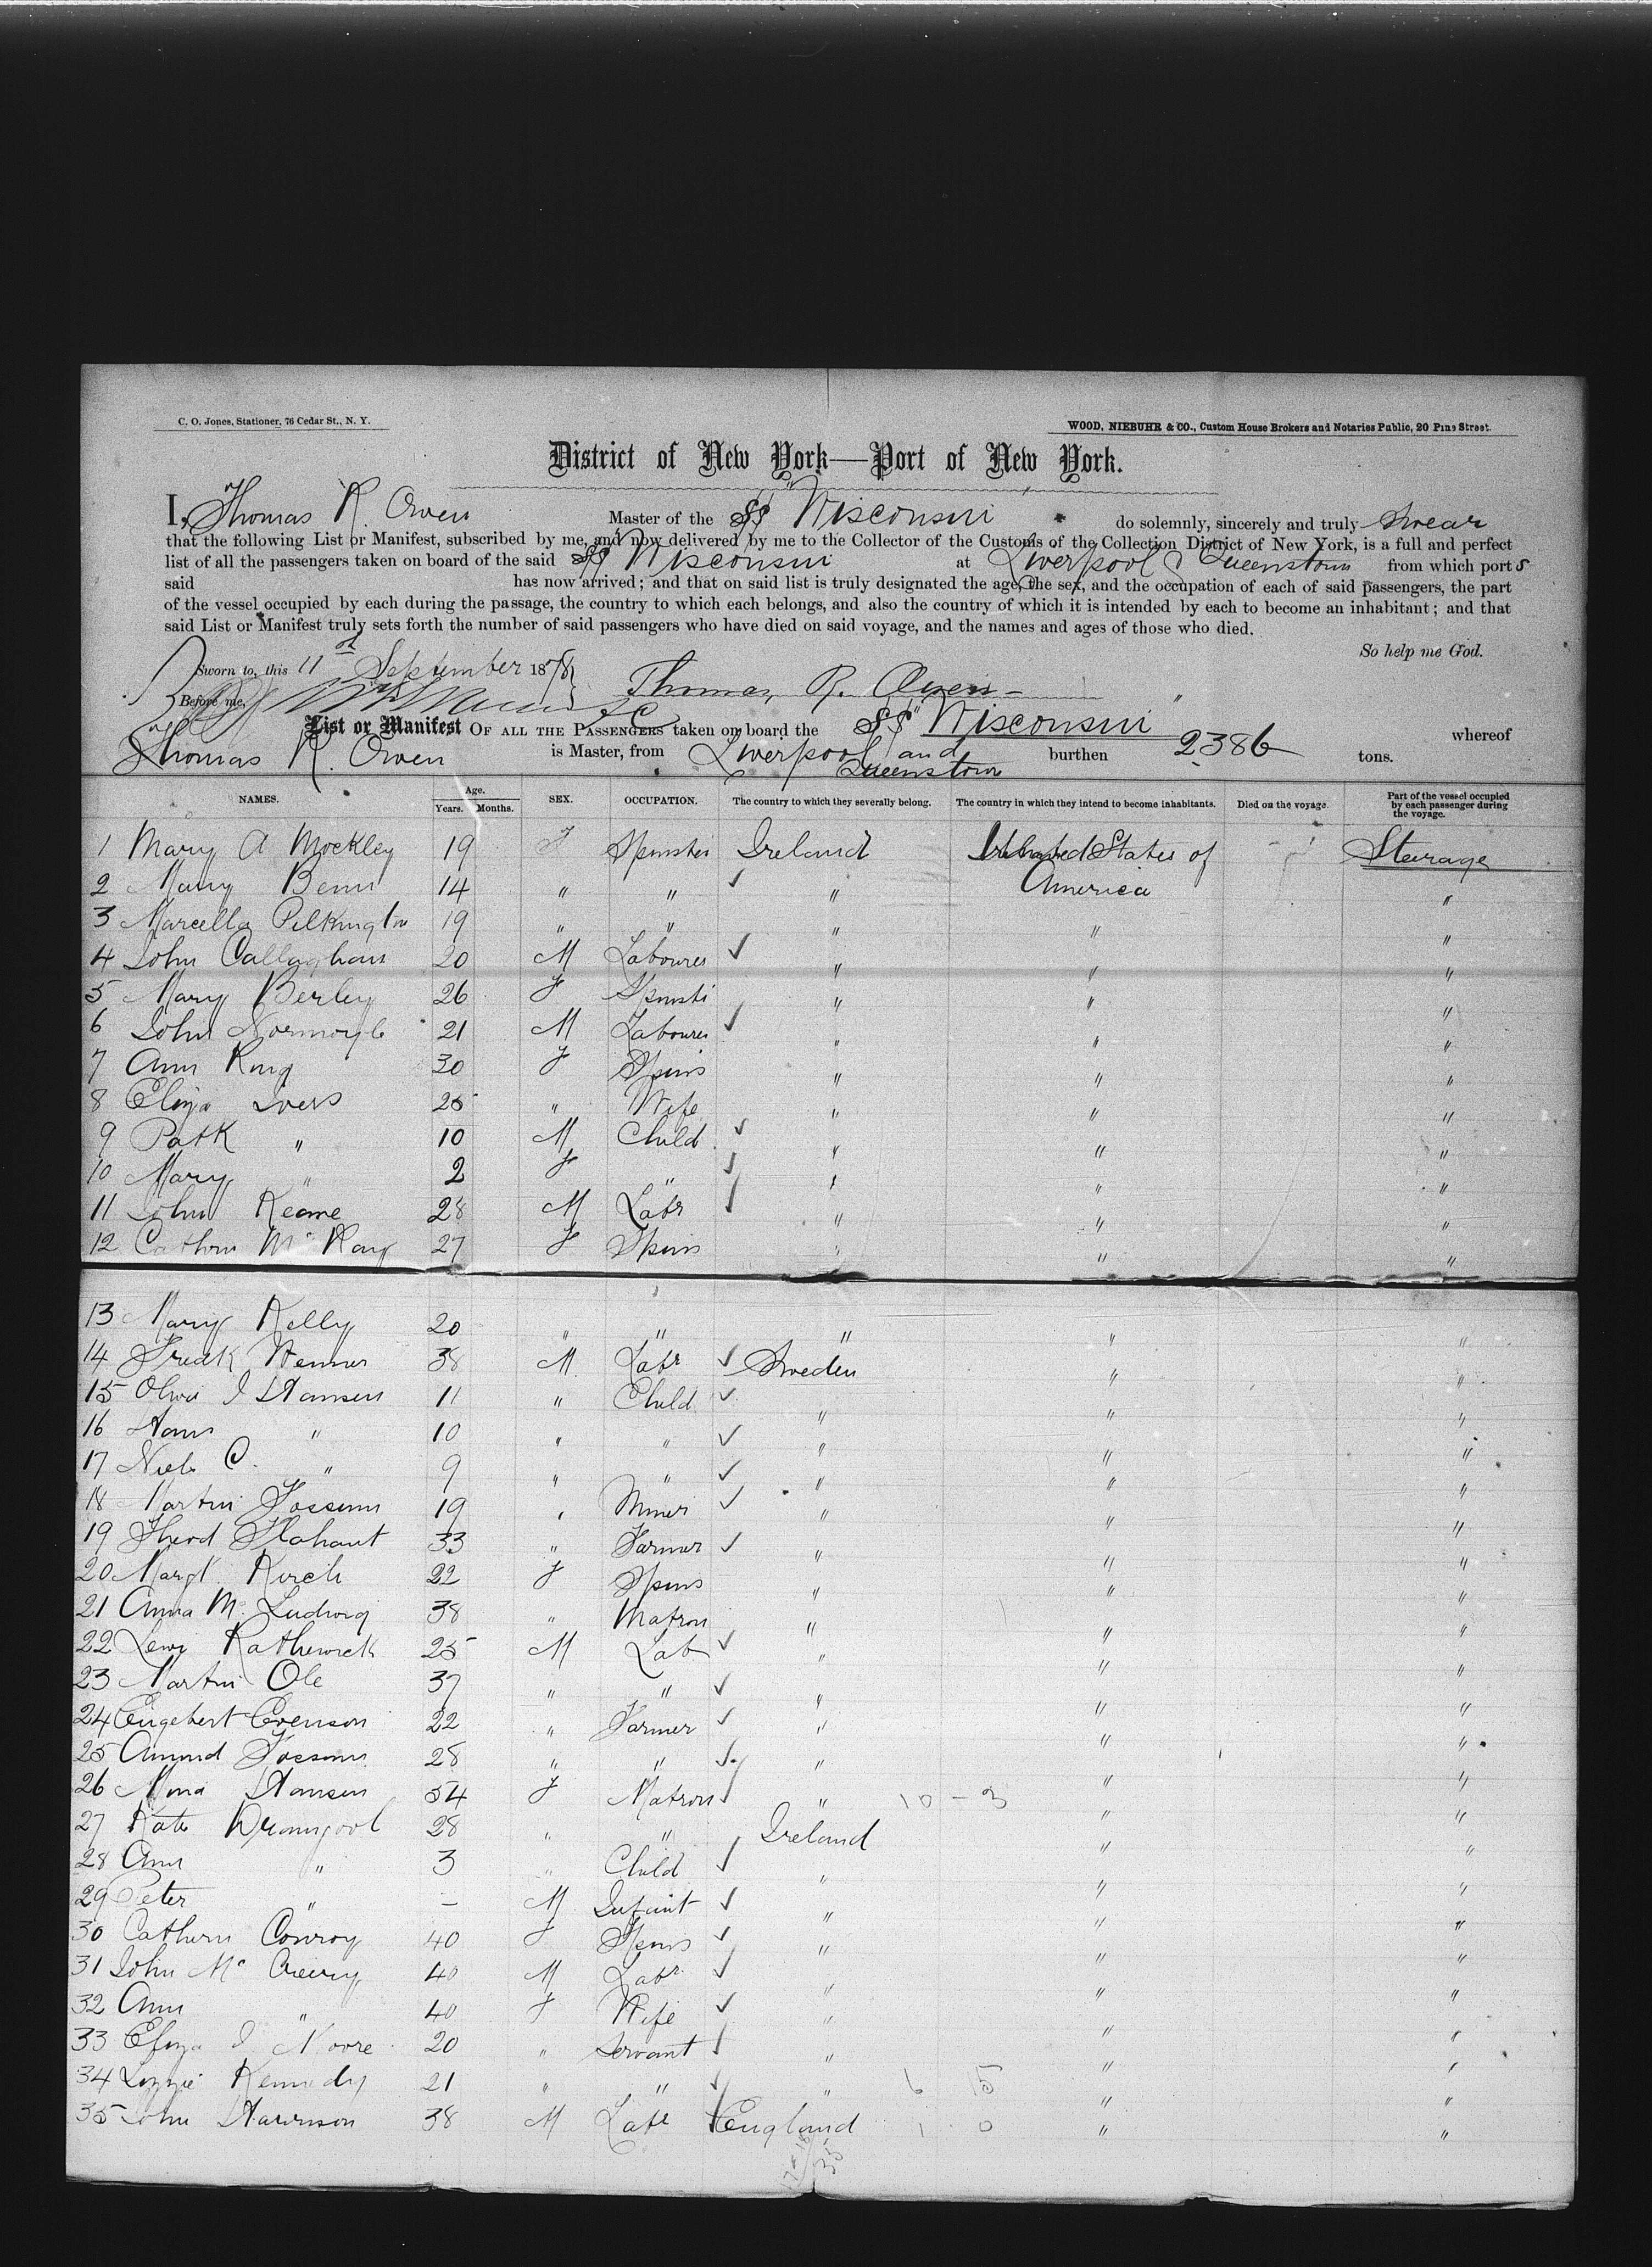 C. O. Jones, Stationer, 76 Cedar St., N. Y.
WOOD, NIEBUHR & CO., Custom House Brokers and Notaries Public, 20 Pine Street.
District of New York—Port of New York.
I, Thomas R. Owen Master of the SS "Wisconsin" do solemnly, sincerely and truly swear
that the following List or Manifest, subscribed by me, and now delivered by me to the Collector of the Customs of the Collection District of New York, is a full and perfect
list of all the passengers taken on board of the said SS Wisconsin at Liverpool & Queenstown from which port s
said has now arrived; and that on said list is truly designated the age, the sex, and the occupation of each of said passengers, the part
of the vessel occupied by each during the passage, the country to which each belongs, and also the country of which it is intended by each to become an inhabitant; and that
said List or Manifest truly sets forth the number of said passengers who have died on said voyage, and the names and ages of those who died.
So help me God.
Sworn to, this 11th September 1878
Thomas R. Owen
Before me,
List or Manifest OF ALL THE PASSENGERS taken on board the SS "Wisconsin" whereof
Thomas R. Owen is Master, from Liverpool and Queenstown burthen 2386 tons.
NAMES. Age. Years. Months. SEX. OCCUPATION. The country to which they severally belong. The country in which they intend to become inhabitants. Died on the voyage. Part of the vessel occupied by each passenger during the voyage.
1 Mary A Mockley 19 F Spinster Ireland United States of America Steerage
2 Mary 14 " " " "
3 Marcella Pilkington 19 " " " " "
4 John Callaghan 20 M Labourer " " "
5 Mary Berley 26 F Spinst " " "
6 John Normoyle 21 M Labourer " " "
7 Ann King 30 F Spins " " "
8 Eliza Ivers 25 " Wife " " "
9 Patk " 10 M Child " " "
10 Mary " 2 F " " " "
11 John Keane 28 M Labr " " "
12 Cathrn McKay 27 F Spins " " "
13 Mary Kelly 20 " " " " "
14 Fredk 38 M Labr Sweden " "
15 J Hansen 11 " Child " " "
16 Hans " 10 " " " " "
17 Niels C. " 9 " " " " "
18 Martin Fossum 19 " Miner " " "
19 33 " Farmer " " "
20 Margt. Kirch 22 F Spins " " "
21 Anna M. Ludwig 38 " Matron " " "
22 25 M Lab " " "
23 Martin Ole 37 " " " " "
24 Engebert Evenson 22 " Farmer " " "
25 Amund Fossum 28 " " " " "
26 Hansen 54 F Matron " 10 - 3 " "
27 Kate 28 " " Ireland " "
28 Ann " 3 " Child " " "
29 Peter " – M Infant " " "
30 Cathern Conroy 40 F Spins " " "
31 John Mc Creery 40 M Labr " " "
32 Ann " 40 F Wife " " "
33 Eliza J Moore 20 " Servant " " "
34 Lizzie Kennedy 21 " " " 6 15 " "
35 John Harrison 38 M Labr England 1 0 " "